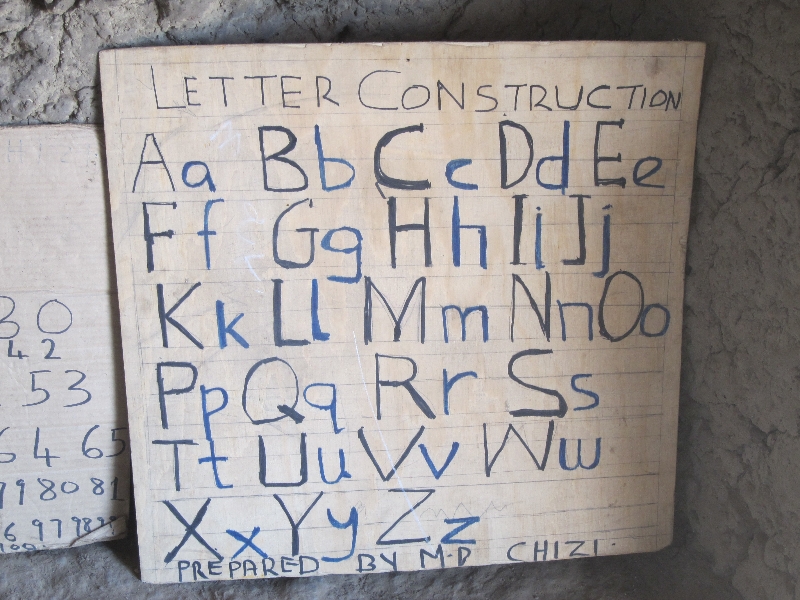 LETTER CONSTRUCTION
Aa Bb Cc Dd Ee
Ff Gg Hh Ii Jj
Kk Ll Mm Nn Oo
Pp Qq Rr Ss
Tt Uu Vv Ww
Xx Yy Zz
PREPARED BY M.D CHIZI.
30
42
53
64 65
80 81
97 98